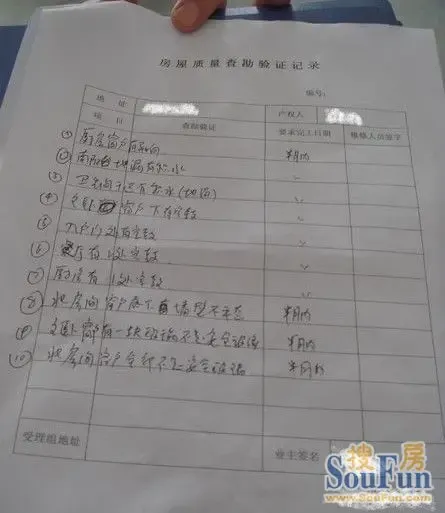 房屋质量查勘验证记录
编号:
地 证 产权人
项 目 查勘验证 要求完工日期 维修人员签字
① 厨房窗户有响 半月内
② 南阳台地漏有积水 〃
③ 卫生间 有积水(地漏) 〃
④ 主卧 窗户下有空鼓 〃
⑤ 入户门处有空鼓 〃
⑥ 客厅有1处空鼓 〃
⑦ 厨房有1处空鼓 〃
⑧ 北房间窗户底下墙 不平 半月内
⑨ 主卧窗 有一块玻璃不是安全玻璃 半月内
⑩ 北房间窗户全部不是安全玻璃 半月内
受理组地址 业主签名
搜房
SouFun
www.SouFun.com